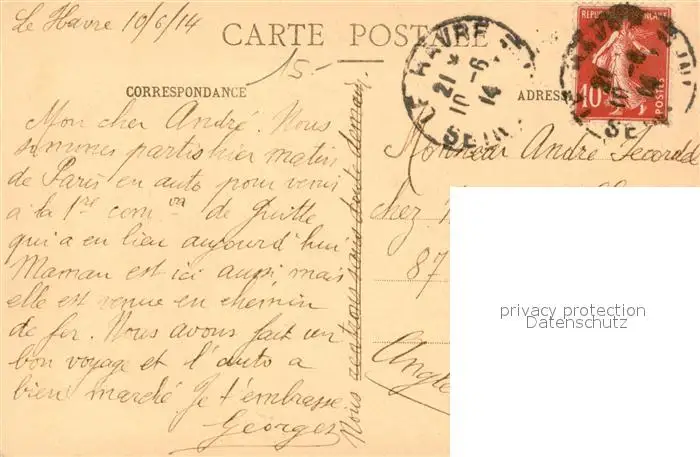 Le Havre 10/6/14
CARTE POSTALE
15-
CORRESPONDANCE
Mon cher André. Nous
sommes partis hier matin
de Paris en auto pour venir
à la 1re com on de Guitte
qui a eu lieu aujourd'hui
Maman est ici aussi mais
elle est venue en chemin
de fer. Nous avons fait un
bon voyage et l'auto a
bien marché Je t'embrasse
Georges
Nous rentrons sans doute demain.
LE HAVRE
21 * 10 -6 14
SEINE
REPUBLIQUE FRANÇAISE
10
POSTES
ADRESSE
Monsieur André
chez
87
Angle
privacy protection
Datenschutz